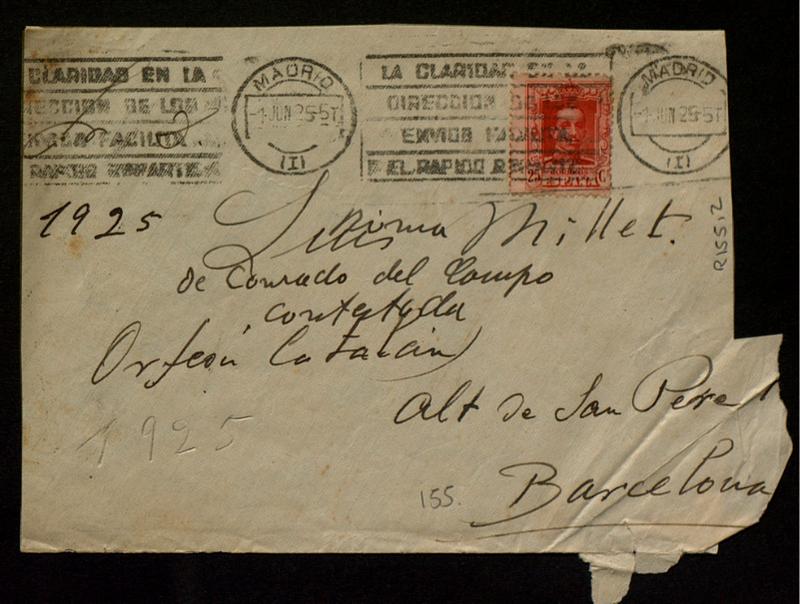 CLARIDAD EN LA
DE LOS
FACILITA
RAPIDO REPARTO
MADRID
-1 JUN 25-5T
(I)
LA CLARIDAD EN LA
DIRECCION DE
ENVIOS FACILITA
EL RAPIDO
MADRID
-1 JUN 25-5T
(I)
25
1925
Millet.
de Conrado del Campo
contestada
Orfeón Catalán
Alt de San Pere 1
Barcelona
1925
155.
R155,2